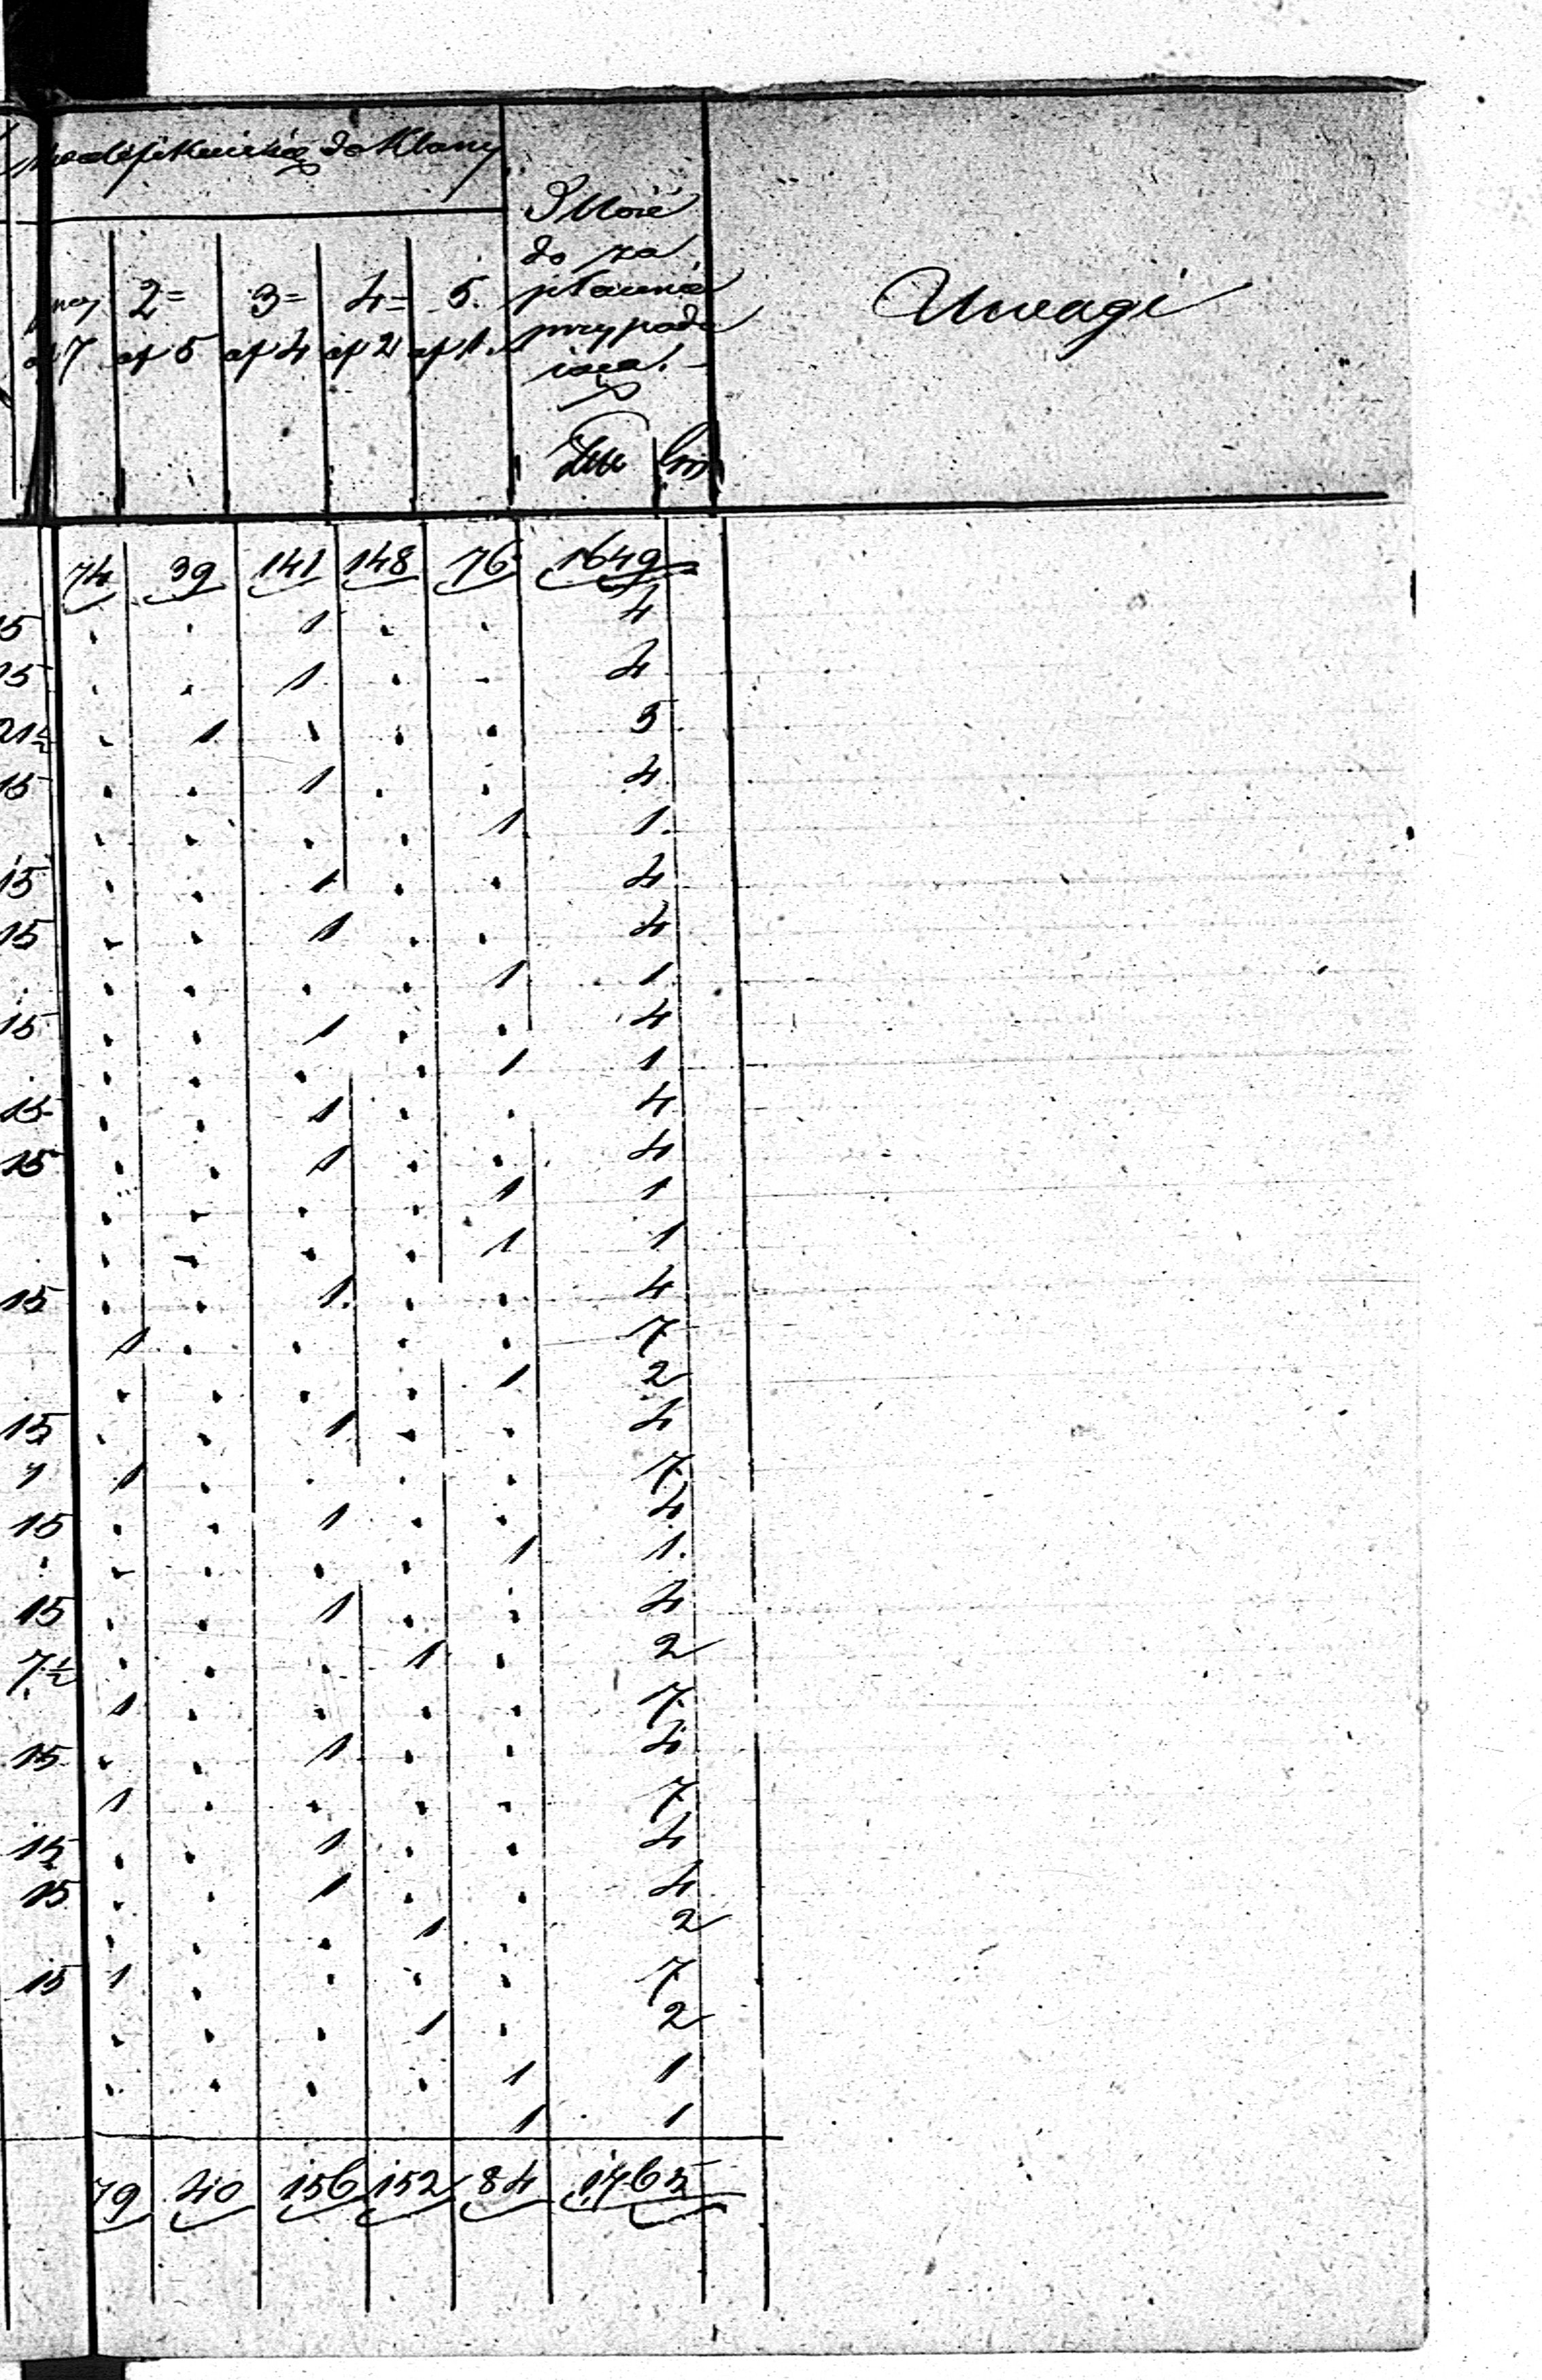 do Klassy
Ilość
do za
płacenia
przypada
iąca.
2= 3= 4= 5.
7 af 5 af 4 af 2 af 1.
Uwagi
74 39 141 148 76 1649
15 . . 1 . . 4
15 . . 1 . - 4
21½ . 1 . . . 5
15 . . 1 . . 4
. . . . 1 1.
15 . . 1 . . 4
15 . . 1 . . 4
. . . . . 1 1
15 . . 1 . . 4
. . . . 1 1
15 . . 1 . . 4
15 . . 1 . . 4
. . . . 1 1
. - . . 1 1
15 . . 1. . . 4
1 . . . . 7
. . . . 1 2
15 . . 1 . . 4
1 . . . . 7
15 . . 1 . . 4
. . . . . 1 1.
15 . . 1 . . 4
7½ . . . 1 . 2
1 . . . 7
15 . . 1 . . 4
1 . . . . 7
15 . . 1 . . 4
15 . . 1 . . 4
. . . 1 . 2
15 1 . . . . 7
. . . 1 . 2
. . . . 1 1
1 1
79 40 156 152 84 1765